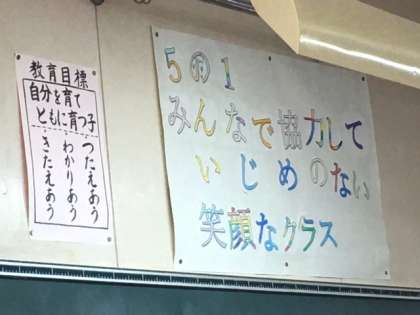 教育目標
自分を育て
ともに育つ子
つたえあう
わかりあう
きたえあう
5の1
みんなで協力して
いじめのない
笑顔なクラス